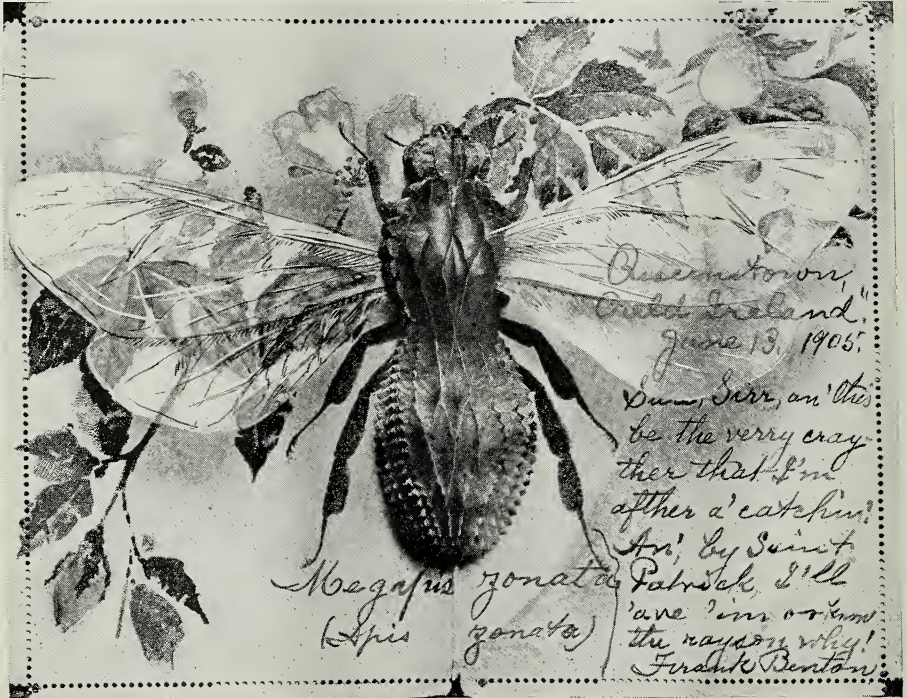 Queenstown,
"Ould Ireland."
June 13, 1905.
Sirr, an' this
be the verry cray-
ther that I'm
afther a' catchin'.
An', by Saint
Patrick, I'll
'ave 'im or know
the rayson why!
Frank Benton
Megapis zonata
(Apis zonata)